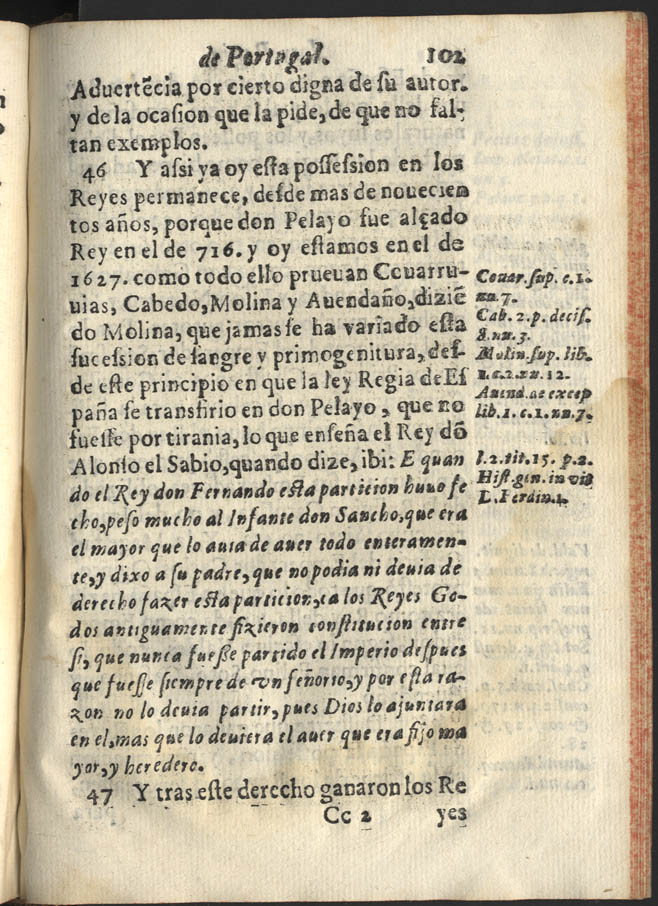 de Portugal. 102
Aduertẽcia por cierto digna de su autor.
y de la ocasion que la pide, de que no fal-
tan exemplos.
46 Y assi ya oy esta possession en los
Reyes permanece, desde mas de nouecien
tos años, porque don Pelayo fue alçado
Rey en el de 716. y oy estamos en el de
1627. como todo ello prueuan Couarru-
uias, Cabedo, Molina y Auendaño, diziẽ
do Molina, que jamas se ha variado esta
sucession de sangre y primogenitura, des-
de este principio en que la ley Regia de Es
paña se transfirio en don Pelayo, que no
fuesse por tirania, lo que enseña el Rey dõ
Alonso el Sabio, quando dize, ibi: E quan
do el Rey don Fernando esta particion huuo fe
cho, peso mucho al Infante don Sancho, que era
el mayor que lo auia de auer todo enteramen-
te, y dixo a su padre, que no podia ni deuia de
derecho fazer esta particion, ca los Reyes Go-
dos antiguamente fizieron constitucion entre
si, que nunca fuesse partido el Imperio despues
que fuesse siempre de vn señorio, y por esta ra-
zon no lo deuia partir, pues Dios lo ajuntara
en el, mas que lo deuiera el auer que era fijo ma
yor, y heredero.
47 Y tras este derecho ganaron los Re
Cc 2 yes
Couar. sup. c. 1.
nu. 7.
Cab. 2. p. decis.
nu. 3.
Molin. sup. lib.
1. c. 2. nu. 12.
Auend. de excep
lib. 1. c. 1. nu. 7.
l. 2. tit. 15. p. 2.
Hist. gen. in vit
D. Ferdin. 1.